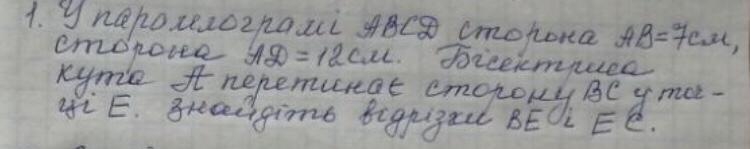 1. У паролелограмі ABCD сторона AB=7см,
сторона AD=12см. Бісектриса
кута A перетинає сторону BC у точ-
ці E. Знайдіть відрізки BE і EC.